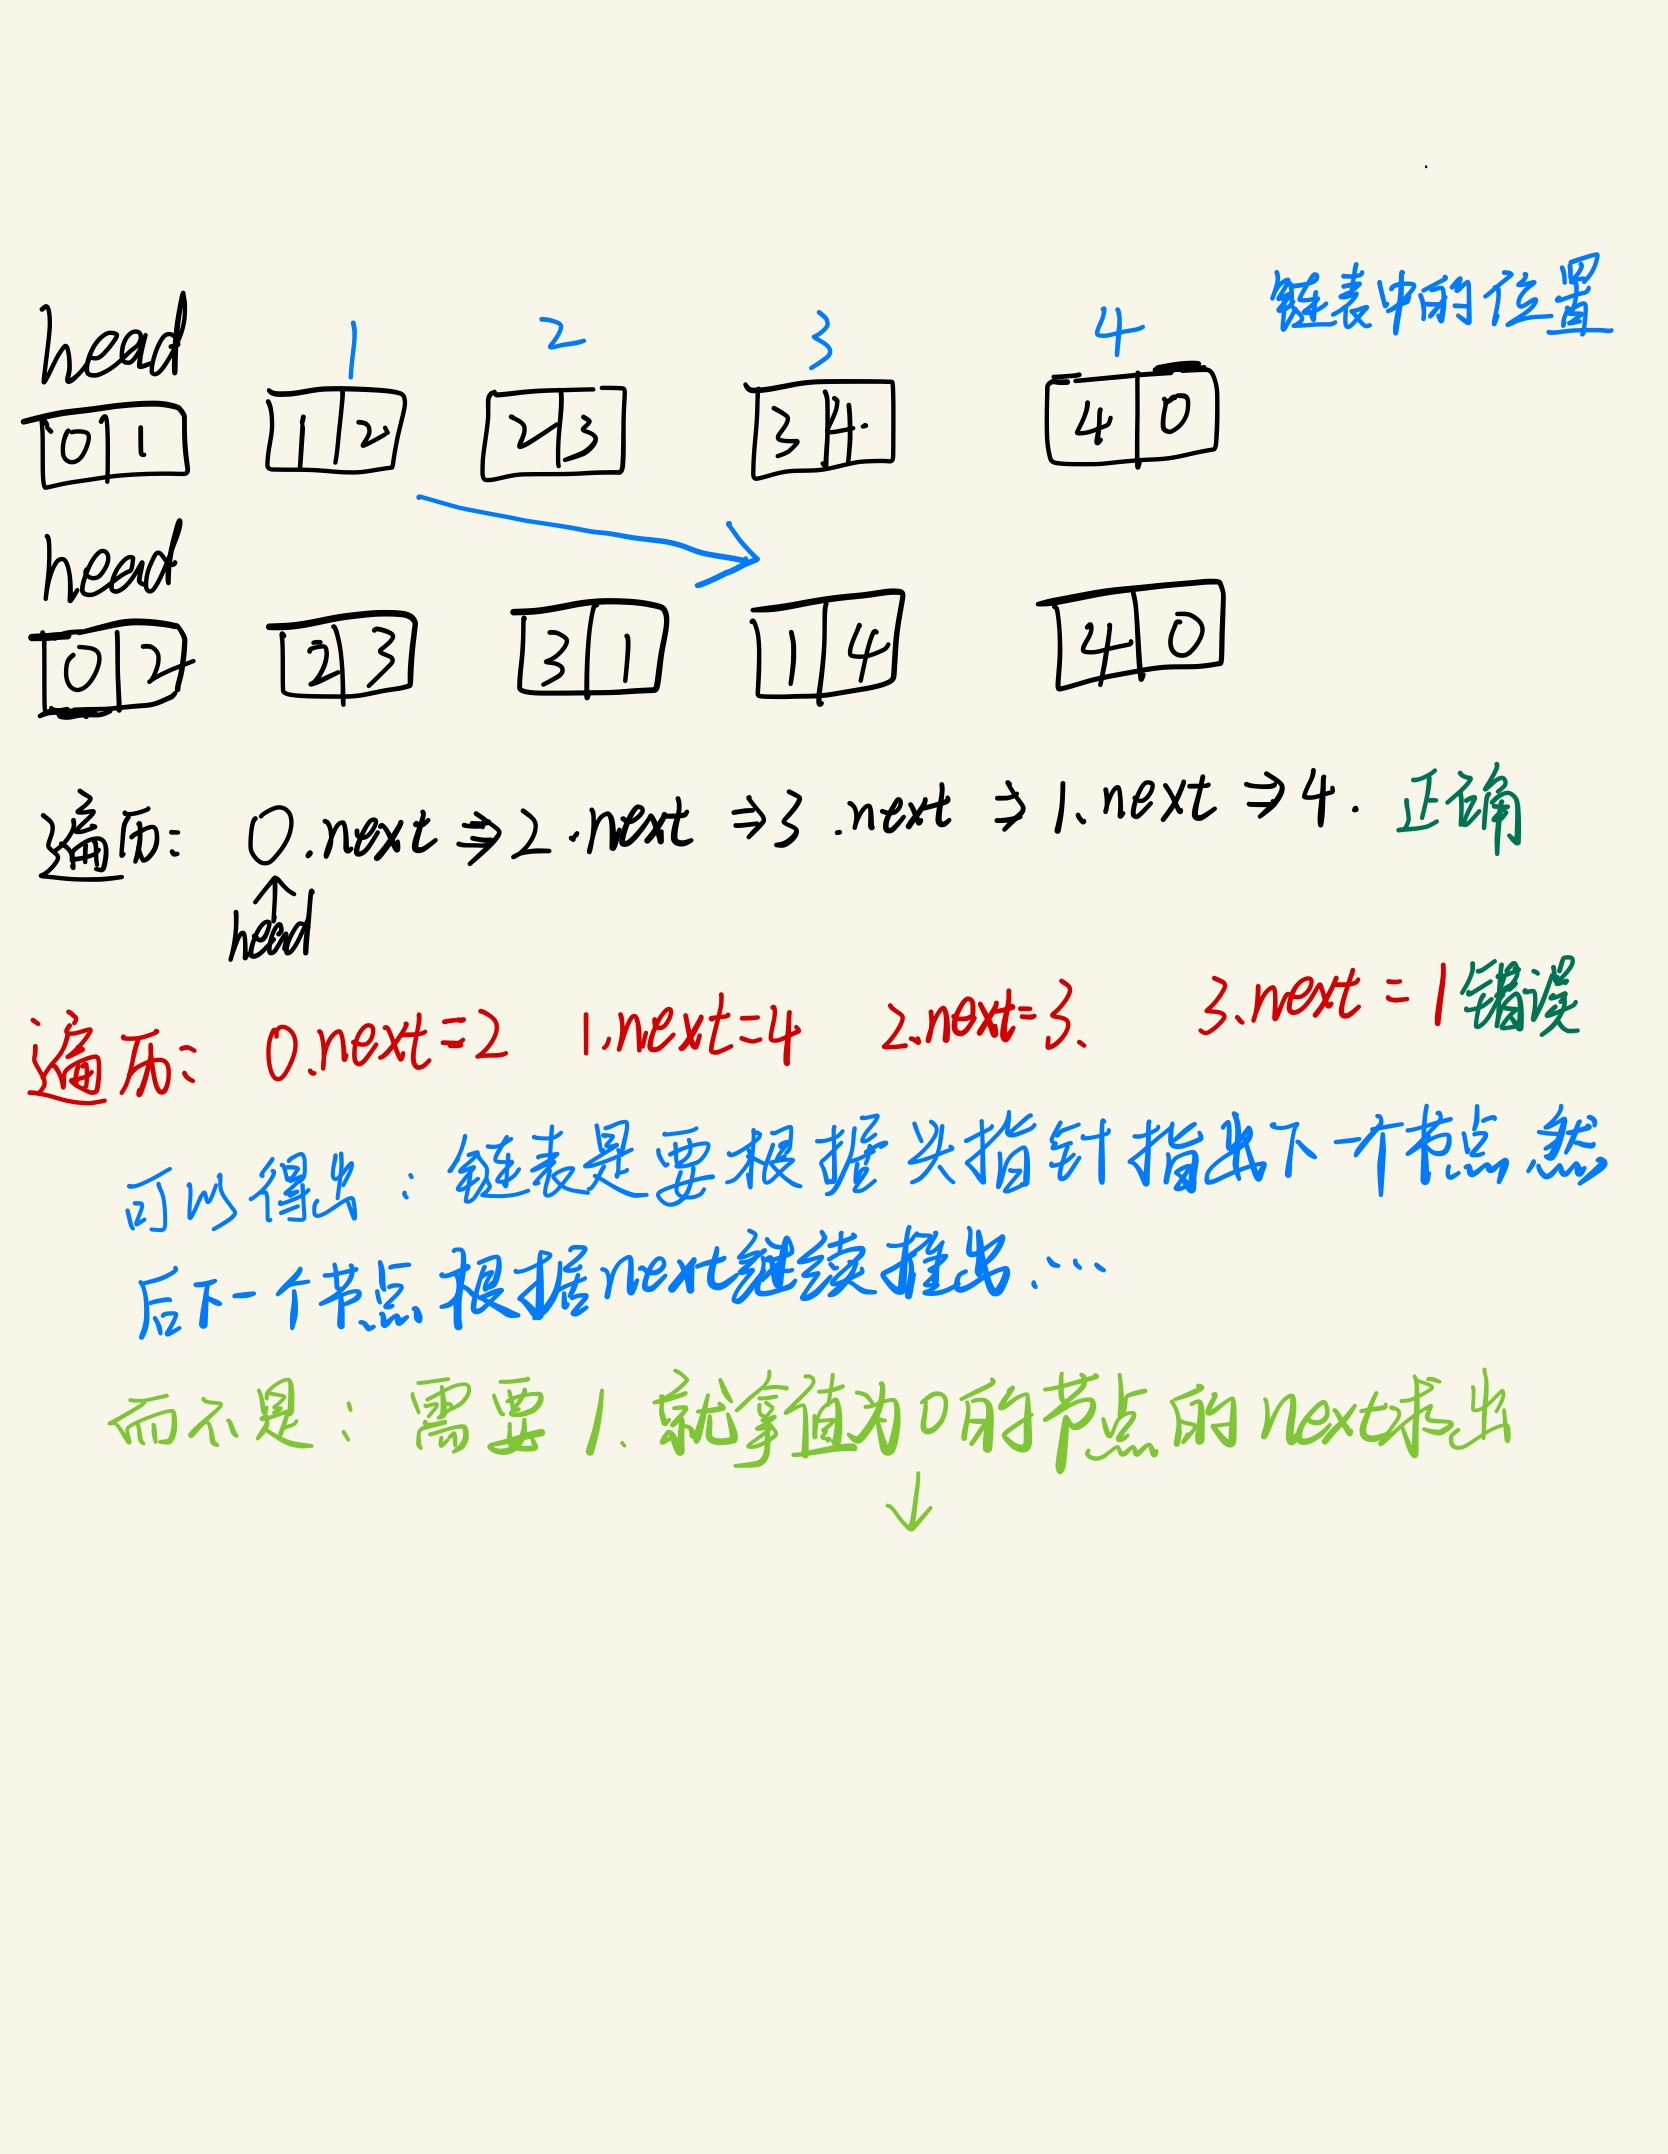 链表中的位置
head 1 2 3 4
0 1 1 2 2 3 3 4. 4 0
head
0 2 2 3 3 1 1 4 4 0
遍历: 0.next ⇒ 2.next ⇒ 3.next ⇒ 1.next ⇒ 4. 正确
↑
head
遍历: 0.next=2 1.next=4 2.next=3. 3.next=1 错误
可以得出: 链表是要根据头指针指出下一个节点 然
后下一个节点根据next继续推出...
而不是: 需要1.就拿值为0的节点的next求出
↓